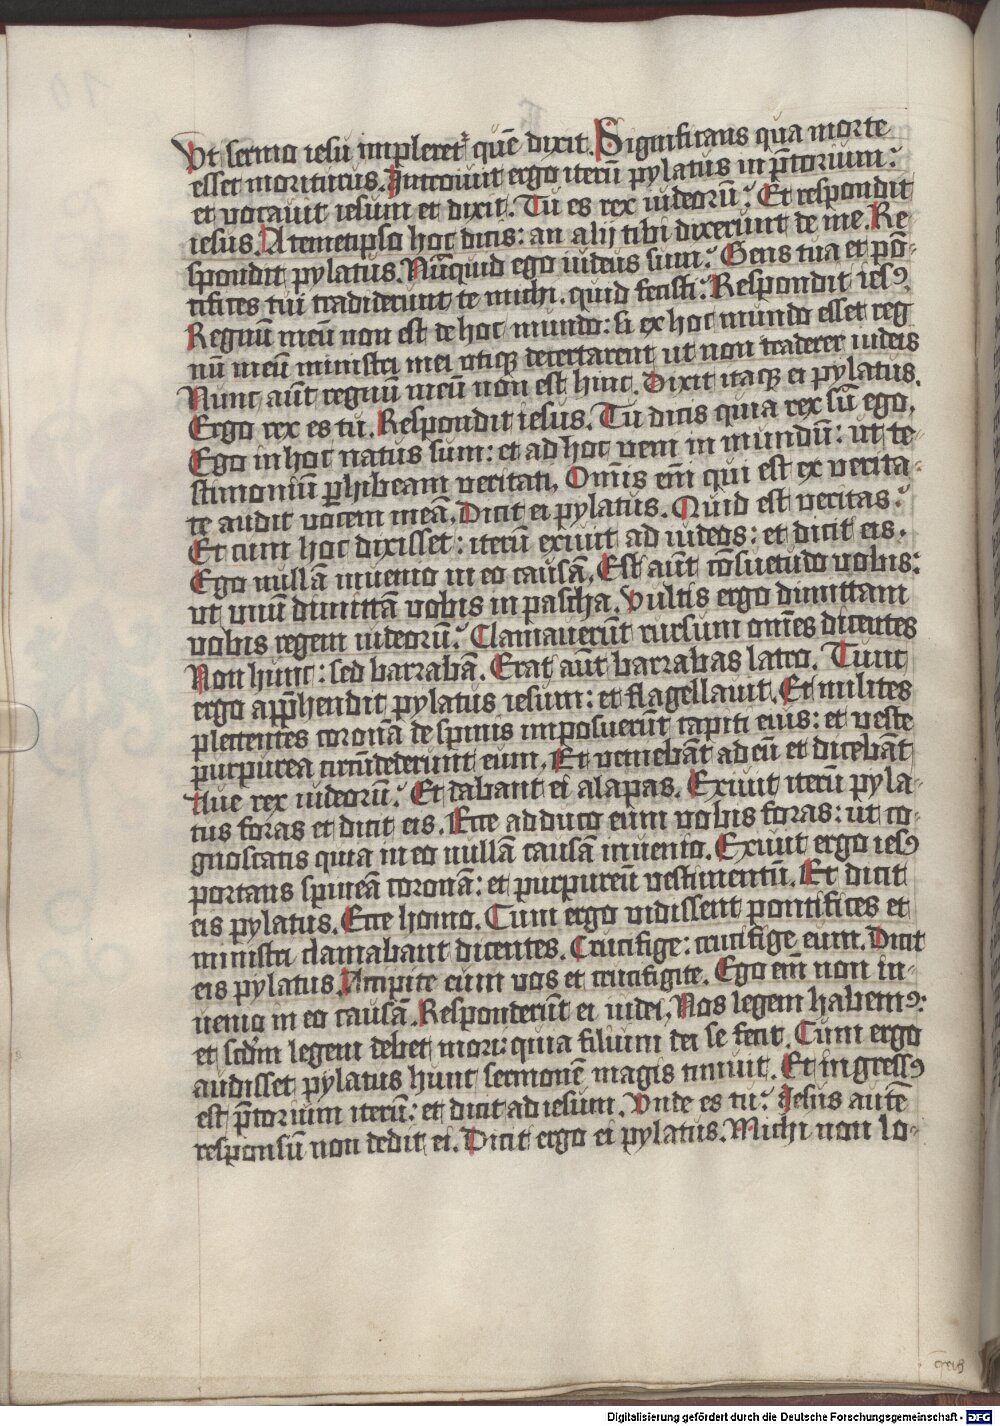 Vt sermo iesu impleret᷑ quē dixit. Significans qua morte
esset moriturus. Introiuit ergo iterū pylatus in p̄torium:
et vocauit iesum et dixit. Tu es rex iudeorū? Et respondit
iesus. A temetipso hoc dicis: an alij tibi dixerunt de me. Re
spondit pylatus. Nūquid ego iudeus sum? Gens tua et pō-
tifices tui tradiderunt te michi. quid fecisti? Respondit iesꝰ.
Regnū meū non est de hoc mundo: si ex hoc mundo esset reg
nū meū ministri mei vtiqꝫ decertarent ut non traderer iudeis
Nunc aūt regnū meū non est hinc. Dixit itaqꝫ ei pylatus.
Ergo rex es tu. Respondit iesus. Tu dicis quia rex sū ego.
Ego in hoc natus sum: et ad hoc veni in mundū: ut te-
stimoniū ꝑhibeam veritati. Om̄is em̄ qui est ex verita-
te audit vocem meā. Dicit ei pylatus. Quid est veritas?
Et cum hoc dixisset: iterū exiuit ad iudeos: et dicit eis.
Ego nullā inuenio in eo causā. Est aūt cōsuetudo vobis:
vt unū dimittā vobis in pascha. Vultis ergo dimittam
vobis regem iudeorū? Clamauerūt rursum om̄es dicentes
Non hunc: sed barrabā. Erat aūt barrabas latro. Tunc
ergo app̄hendit pylatus iesum: et flagellauit. Et milites
plectentes coronā de spinis imposuerūt capiti eius: et veste
purpurea circūdederunt eum. Et veniebāt ad eū et dicebāt
Aue rex iudeorū? Et dabant ei alapas. Exiuit iterū pyla-
tus foras et dicit eis. Ecce adduco eum vobis foras: ut co-
gnoscatis quia in eo nullā causā inuenio. Exiuit ergo iesꝰ
portans spineā coronā: et purpureū vestimentū. Et dicit
eis pylatus. Ecce homo. Cum ergo vidissent pontifices et
ministri clamabant dicentes. Crucifige: crucifige eum. Dicit
eis pylatus. Accipite eum vos et crucifigite. Ego em̄ non in-
uenio in eo causā. Responderūt ei iudei, Nos legem habemꝰ:
et scd̄m legem debet mori: quia filium dei se fecit. Cum ergo
audisset pylatus hunc sermonē magis timuit. Et ingressꝰ
est p̄torium iterū: et dicit ad iesum. Vnde es tu? Iesus autē
responsū non dedit ei. Dicit ergo ei pylatus. Michi non lo-
Digitalisierung gefördert durch die Deutsche Forschungsgemeinschaft - DFG